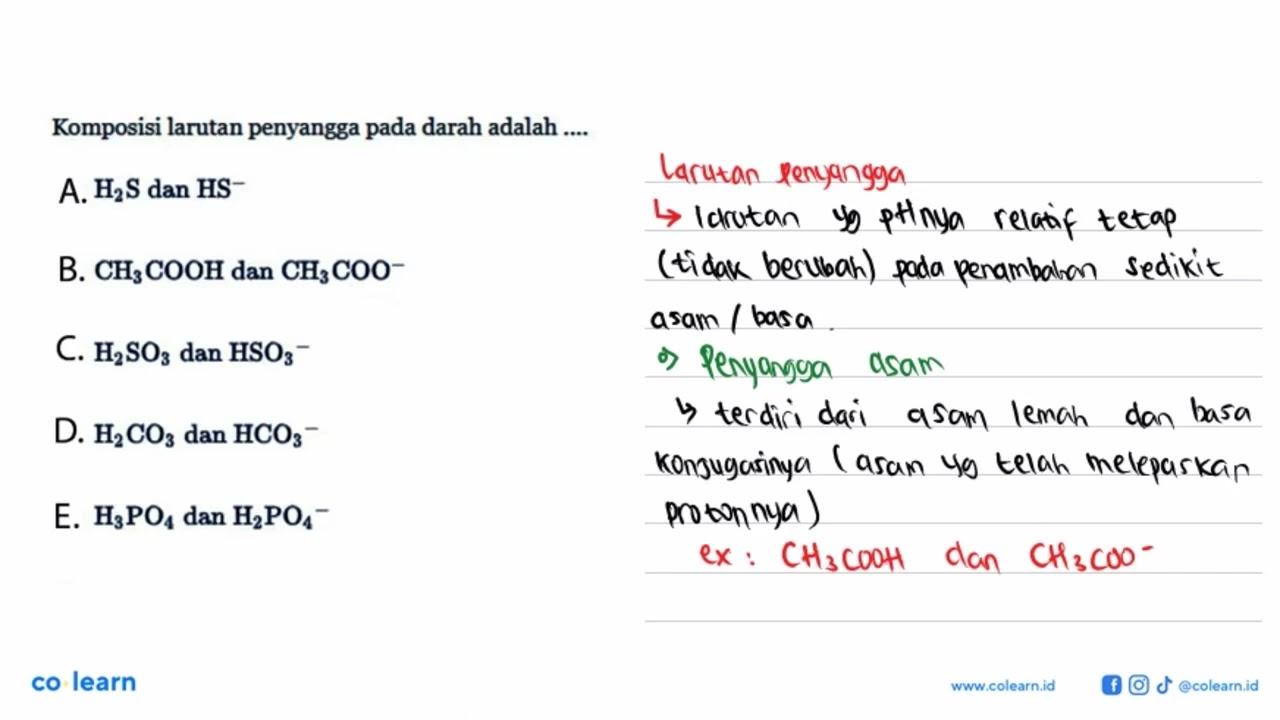 Komposisi larutan penyangga pada darah adalah ....
A. H₂S dan HS⁻
B. CH₃COOH dan CH₃COO⁻
C. H₂SO₃ dan HSO₃⁻
D. H₂CO₃ dan HCO₃⁻
E. H₃PO₄ dan H₂PO₄⁻
Larutan Penyangga
↳ larutan yg pHnya relatif tetap
(tidak berubah) pada penambahan sedikit
asam / basa.
Penyangga asam
↳ terdiri dari asam lemah dan basa
konjugasinya (asam yg telah meleparkan
protonnya)
ex : CH₃COOH dan CH₃COO⁻
co·learn
www.colearn.id
@colearn.id